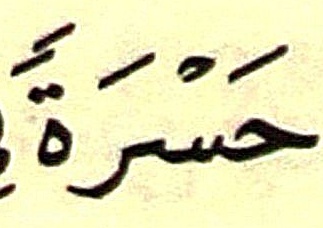 حَسْرَةً